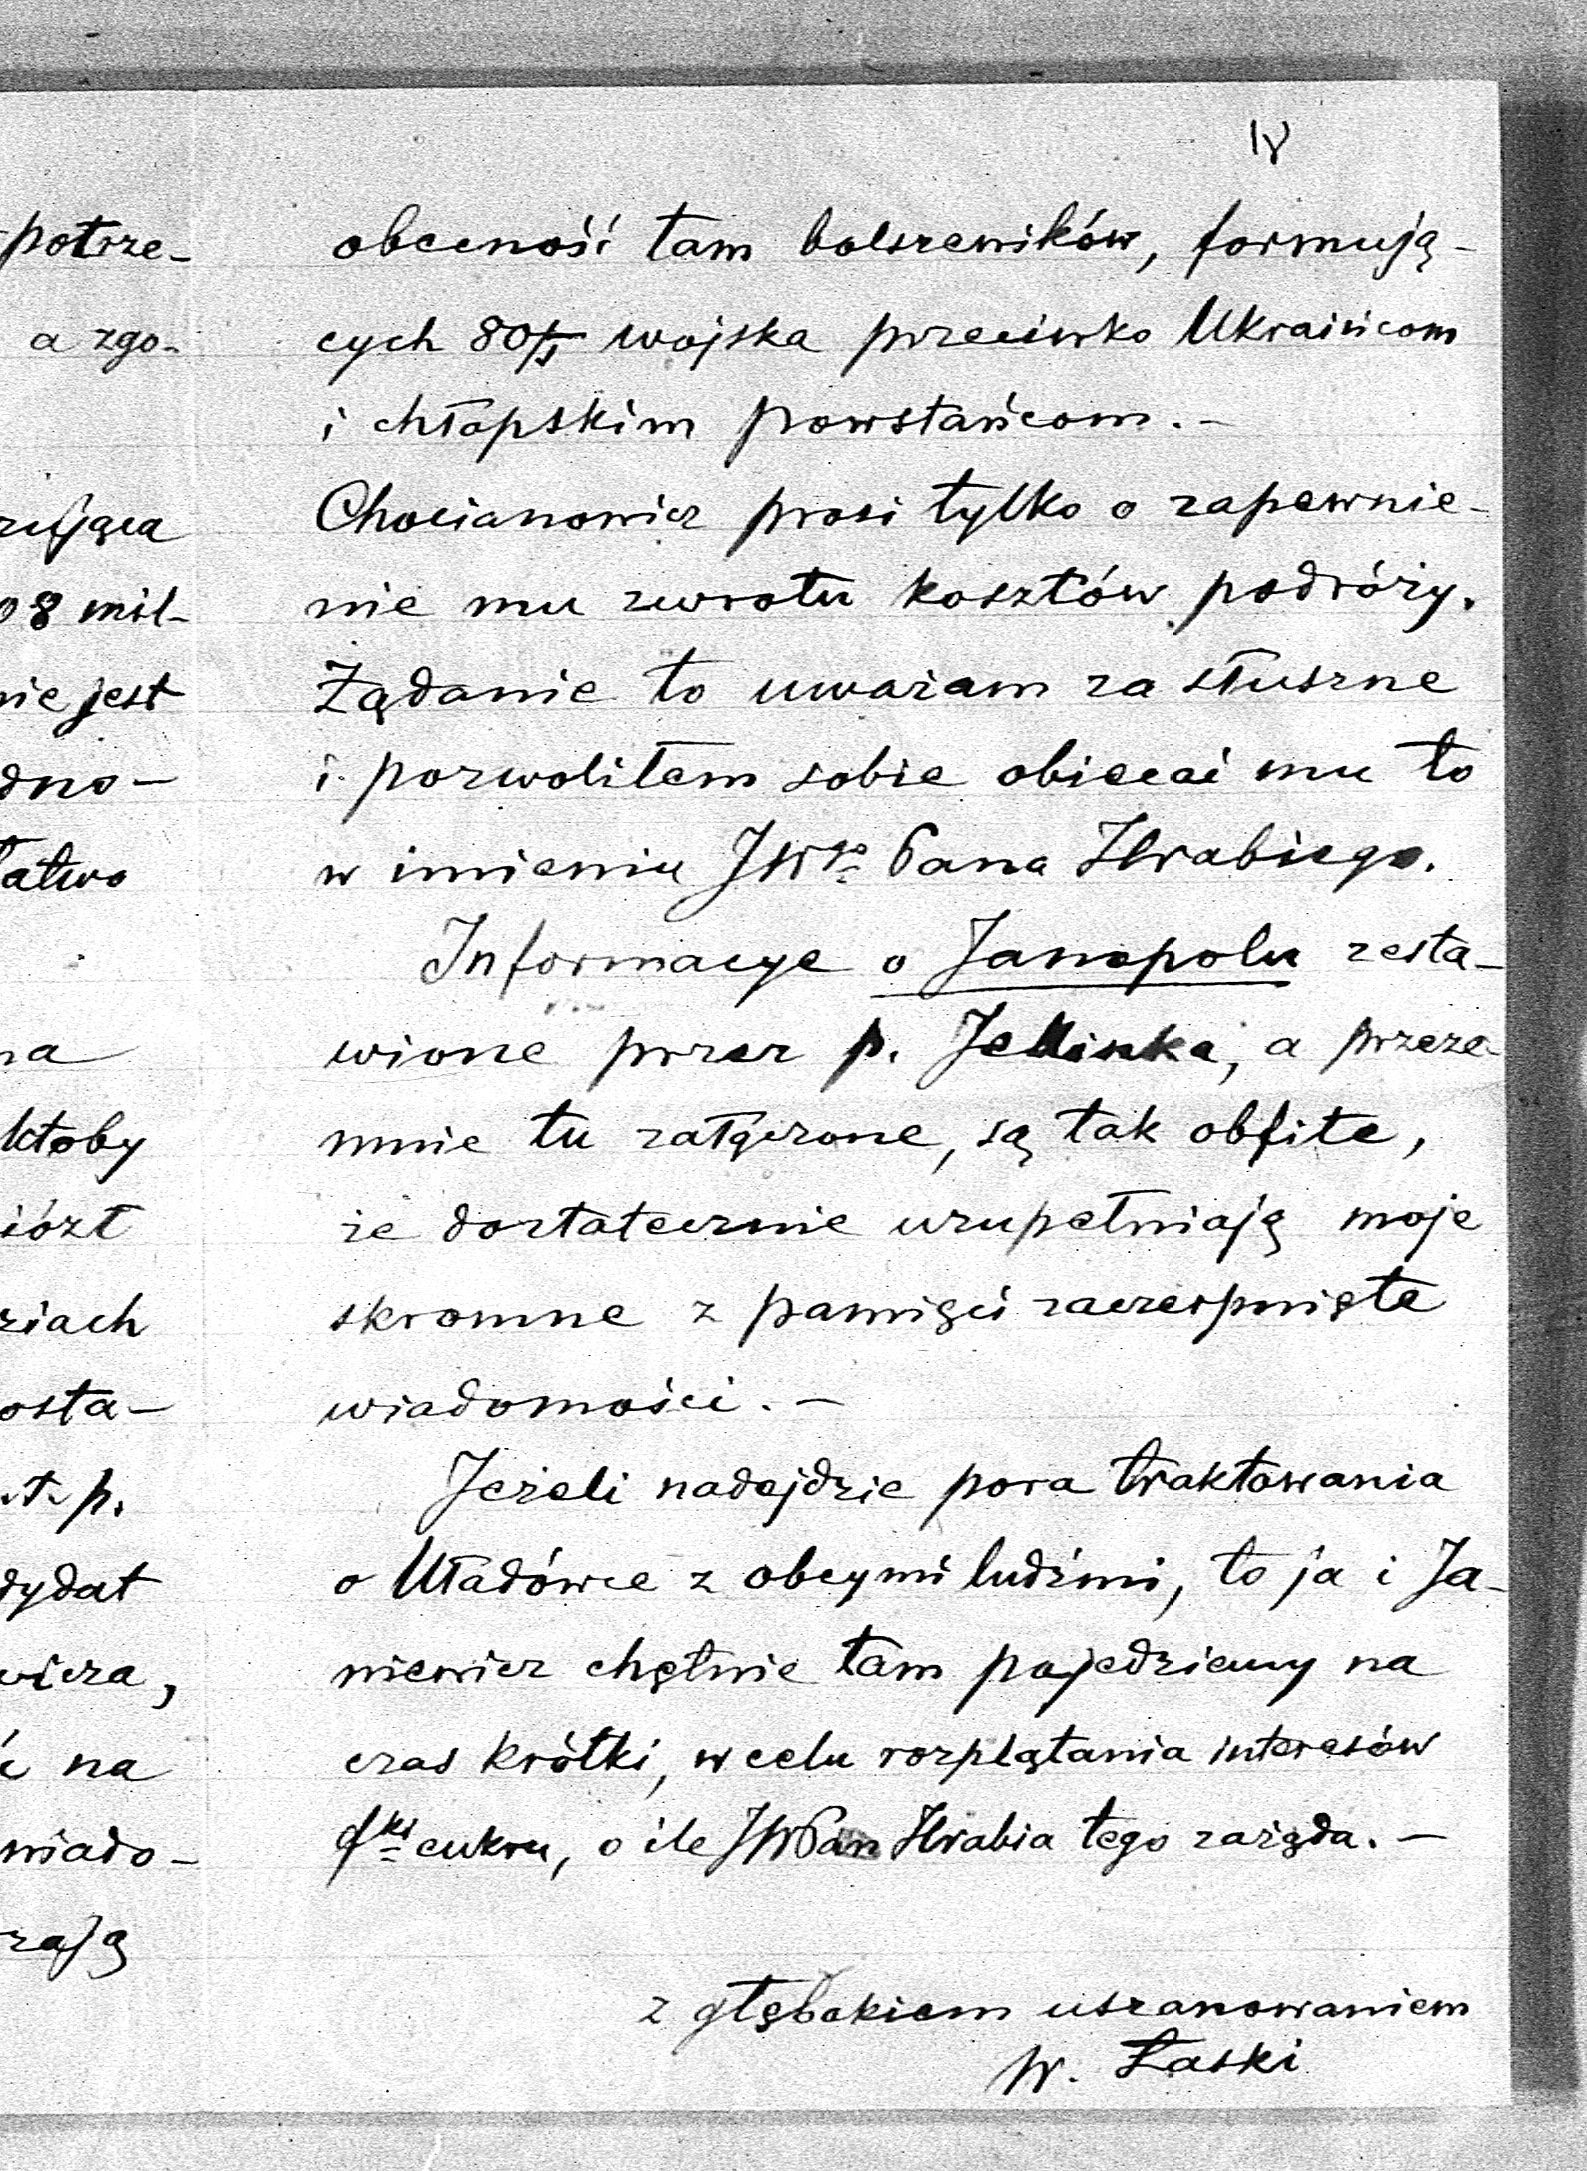 18
obecność tam bolszewików, formują-
cych 80% wojska przeciwko Ukraińcom
i chłopskim powstańcom.-
Chocianowicz prosi tylko o zapewnie-
nie mu zwrotu kosztów podróży.
Żądanie to uważam za słuszne
i pozwoliłem sobie obiecać mu to
w imieniu JWgo Pana Hrabiego.
Informacye o Janopolu zesta-
wione przez p. Jellinka, a przeze-
mnie tu załączone, są tak obfite,
że dostatecznie uzupełniają moje
skromne z pamięci zaczerpnięte
wiadomości.-
Jeżeli nadejdzie pora traktowania
o Uładówce z obcymi ludźmi, to ja i Ja-
niewicz chętnie tam pojedziemy na
czas krótki, w celu rozplątania interesów
fki cukru, o ile JWPan Hrabia tego zażąda.-
z głębokiem uszanowaniem
W. Łaski
potrze-
a zgo-
08 mil-
nie jest
dno-
łatwo
na
ktoby
ziach
osta-
t. p.
dydat
wicza,
ć na
wiado-